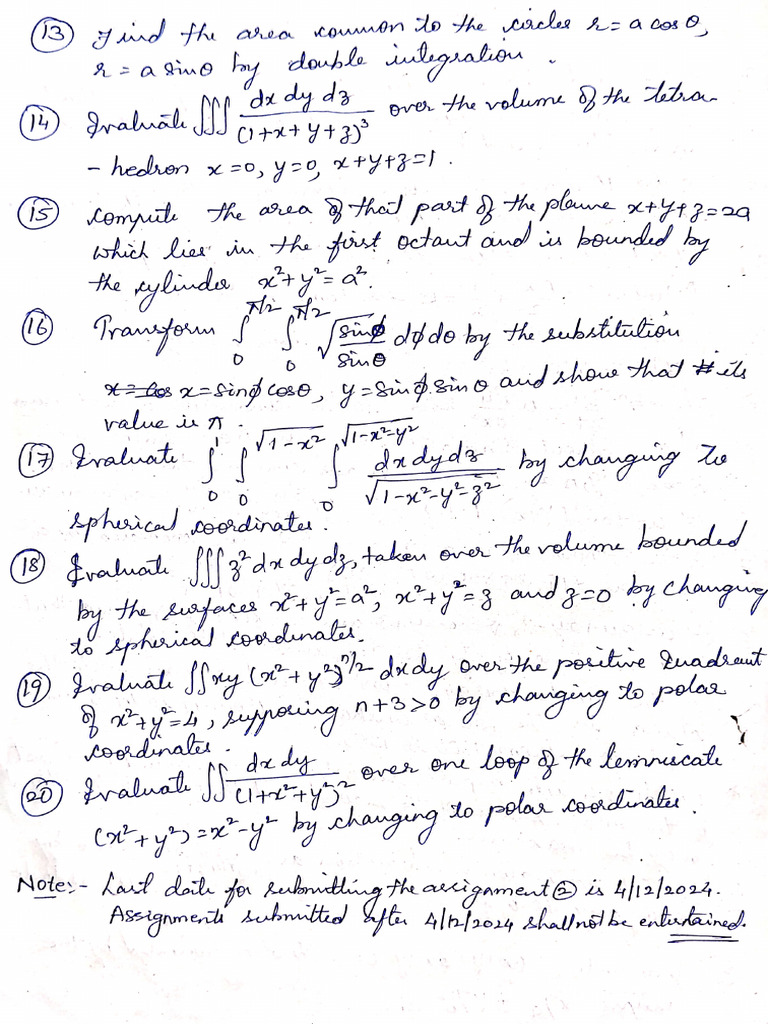 (13) Find the area common to the circles r = a cos θ,
r = a sin θ by double integration.
(14) Evaluate ∭ dx dy dz / (1+x+y+z)³ over the volume of the tetra-
- hedron x=0, y=0, x+y+z=1.
(15) Compute the area of that part of the plane x+y+z=2a
which lies in the first octant and is bounded by
the cylinder x²+y²=a².
(16) Transform ∫₀^{π/2} ∫₀^{π/2} √(sinϕ/sinθ) dϕ dθ by the substitution
x = sinϕ cosθ, y = sinϕ sinθ and show that its
value is π.
(17) Evaluate ∫₀^1 ∫₀^{√(1-x²)} ∫₀^{√(1-x²-y²)} dx dy dz / √(1-x²-y²-z²) by changing to
spherical coordinates.
(18) Evaluate ∭ z² dx dy dz, taken over the volume bounded
by the surfaces x²+y²=a², x²+y²=z and z=0 by changing
to spherical coordinates.
(19) Evaluate ∬ xy (x²+y²)^{n/2} dx dy over the positive Quadrant
of x²+y²=4, supposing n+3>0 by changing to polar
coordinates.
(20) Evaluate ∬ dx dy / (1+x²+y²)² over one loop of the lemniscate
(x²+y²) = x²-y² by changing to polar coordinates.
Note:- Last date for submitting the assignment (2) is 4/12/2024.
Assignments submitted after 4/12/2024 shall not be entertained.